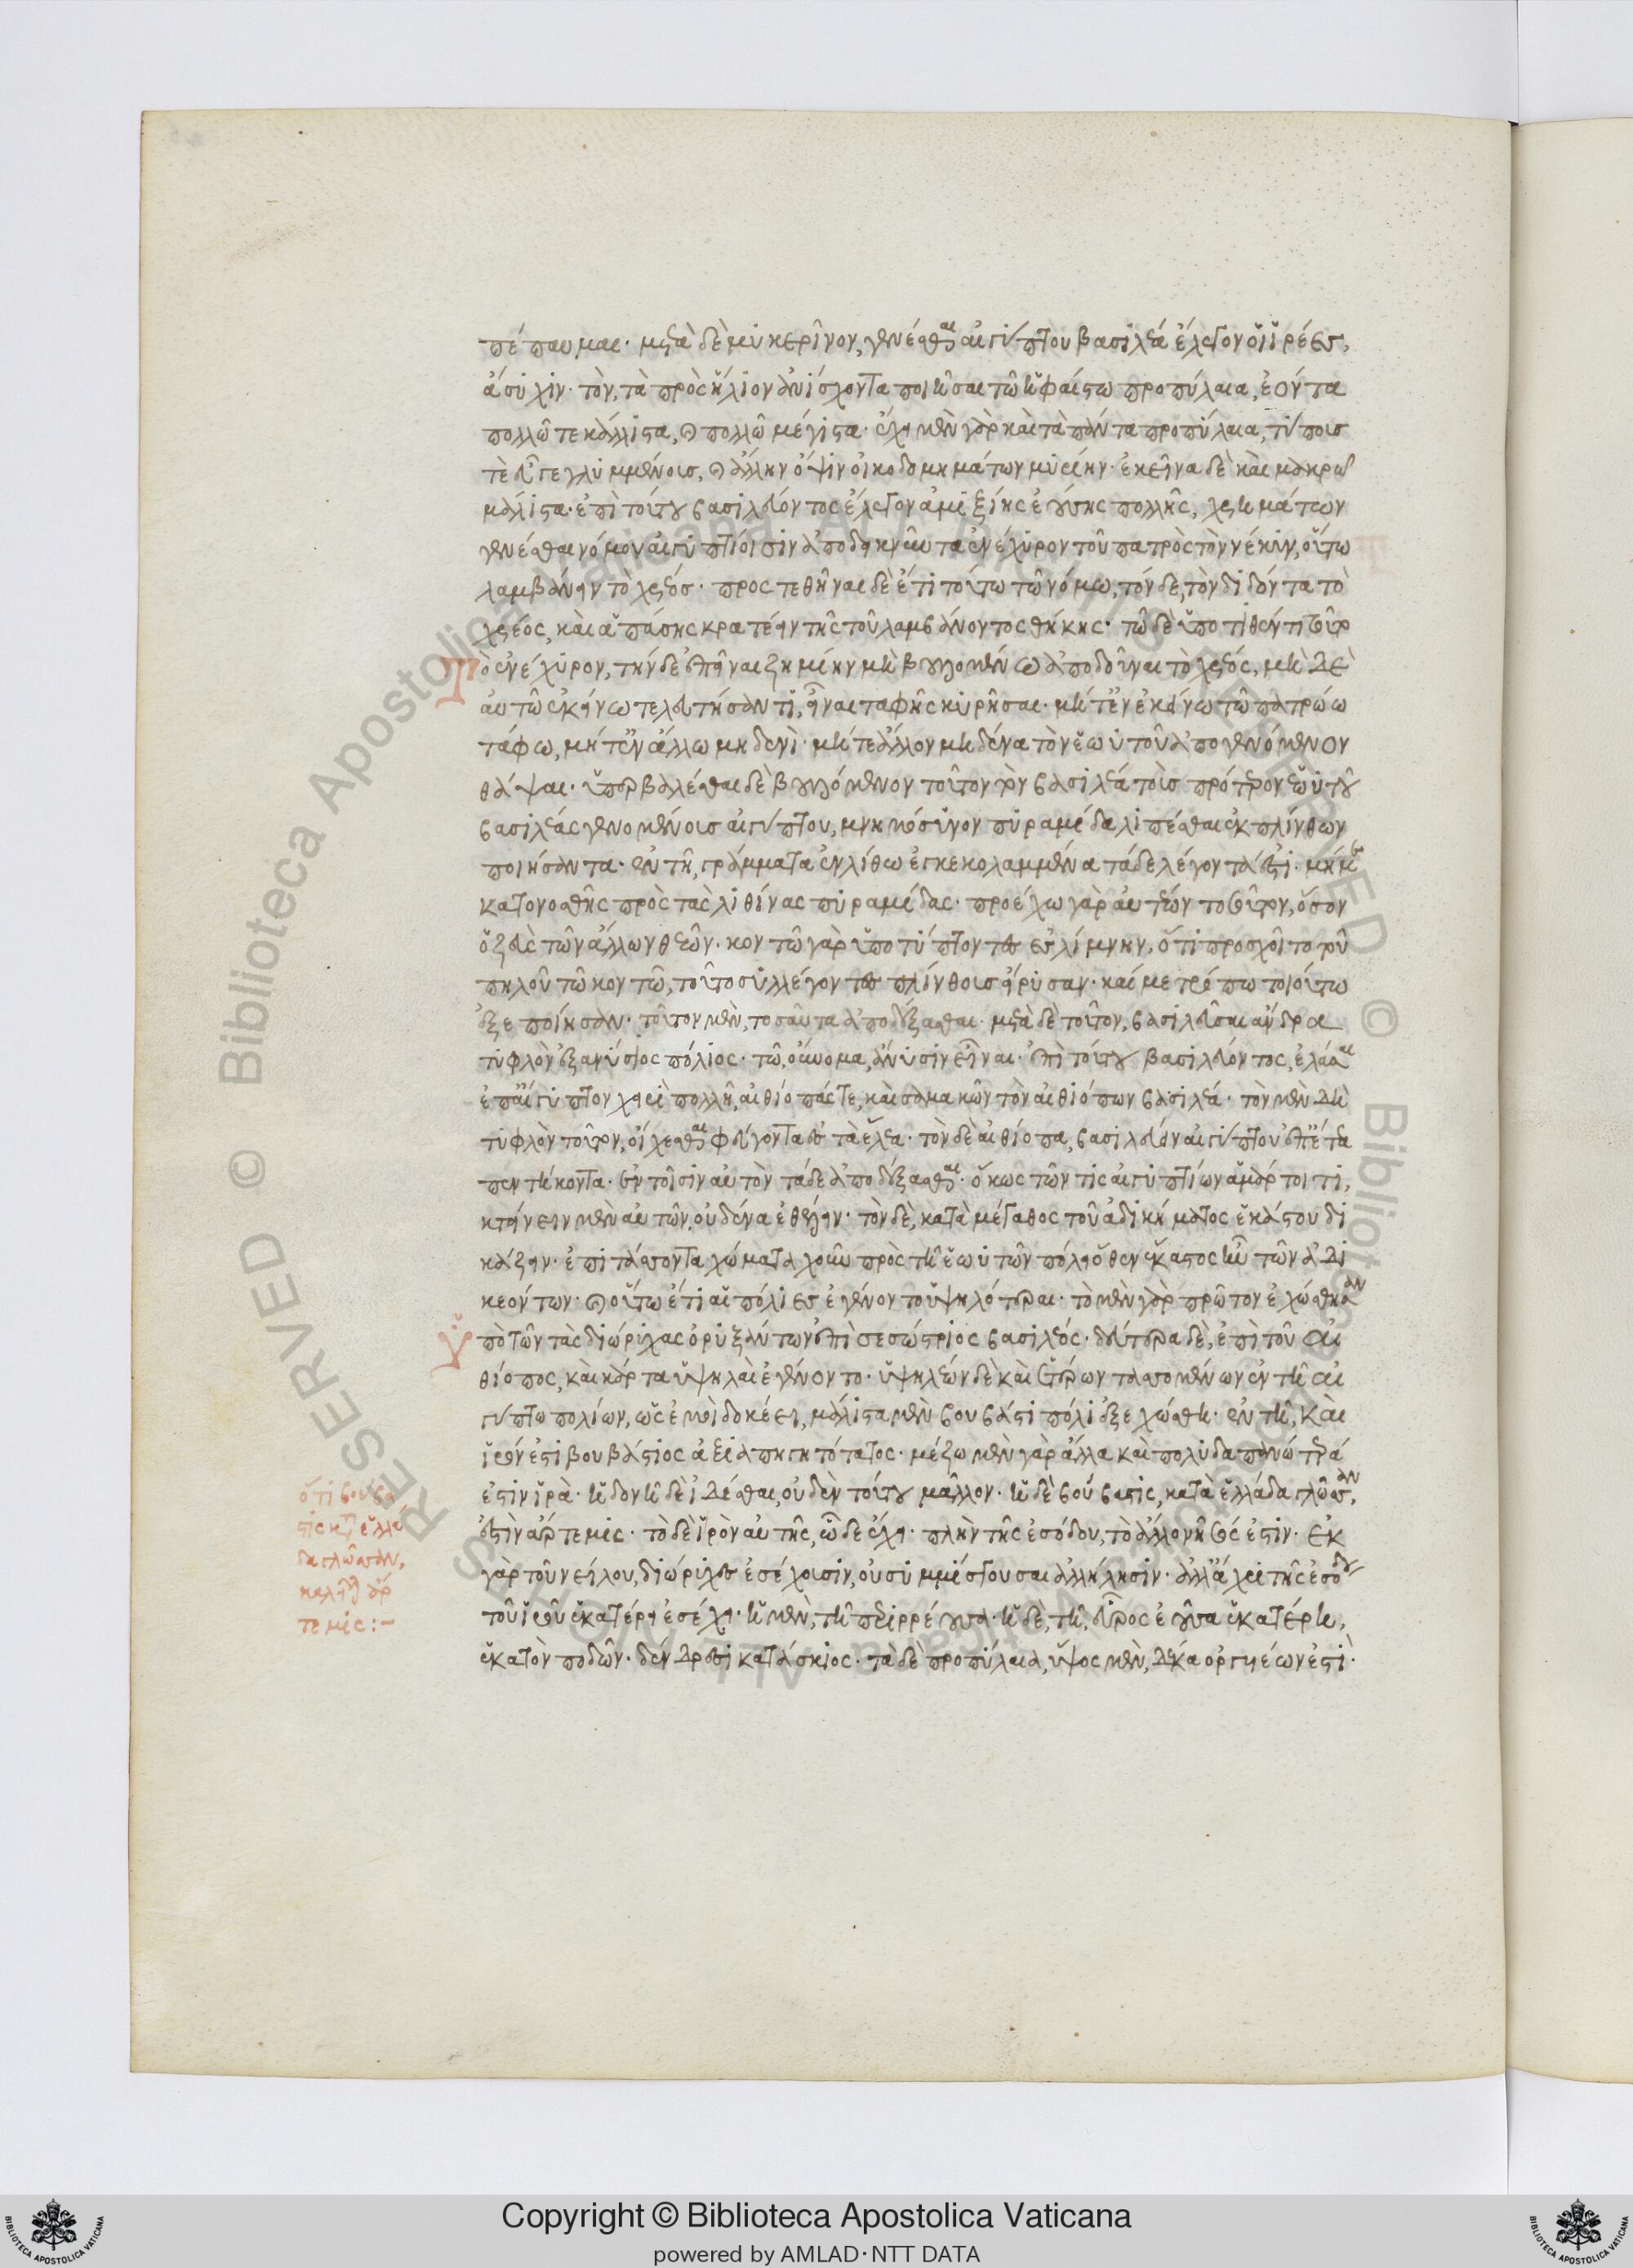 πέπαυμαι· μετὰ δὲ μυκερῖνον, γενέσθαι αἰγύπτου βασιλέα ἔλεγον οἱ ἱρέες,
ἄσυχιν· τὸν, τὰ πρὸς ἥλιον ἀνίσχοντα ποιῆσαι τῶ ἡφαίστω προπύλαια, ἐόντα
πολλῶ τε κάλλιστα, καὶ πολλῶ μέγιστα· ἔχει μὲν γὰρ καὶ τὰ πάντα προπύλαια, τύπους
τὲ ἐγγεγλυμμένους, καὶ ἄλλην ὄψιν οἰκοδομημάτων μυρίην· ἐκεῖνα δὲ καὶ μακρῶ
μάλιστα· ἐπὶ τούτου βασιλεύοντος ἔλεγον ἀμιξίης ἐούσης πολλῆς, χρημάτων
γενέσθαι νόμον αἰγυπτίοισιν ἀποδεικνῦντα ἐνέχυρον τοῦ πατρὸς τὸν νέκυν, οὕτω
λαμβάνειν τὸ χρέος· προστεθῆναι δὲ ἔτι τούτω τῶ νόμω, τόνδε, τὸν διδόντα τὸ
χρέος, καὶ ἁπάσης κρατέειν τῆς τοῦ λαμβάνοντος θήκης· τῶ δὲ ὑποτιθέντι τοῦτ
ὸ ἐνέχυρον, τήνδε ἐπεῖναι ζημίην μὴ βουλομένω ἀποδοῦναι τὸ χρέος, μὴ δὲ
αὐτῶ ἐκείνω τελευτήσαντι, εἶναι ταφῆς κυρῆσαι· μήτ' ἐν ἐκείνω τῶ πατρώω
τάφω, μήτ' ἐν ἄλλω μηδενὶ· μήτε ἄλλον μηδένα τὸν ἑωυτοῦ ἀπογενόμενον
θάψαι· ὑπερβαλέσθαι δὲ βουλόμενον τοῦτον τὸν βασιλέα τοὺς πρότερον ἑωυτοῦ
βασιλέας γενομένους αἰγύπτου, μνημόσυνον πυραμίδα λιπέσθαι ἐκ πλίνθων
ποιήσαντα· ἐν τῆ, γράμματα ἐν λίθω ἐγκεκολαμμένα τάδε λέγοντά ἐστι· μή με
κατονοσθῆς πρὸς τὰς λιθίνας πυραμίδας· προέχω γὰρ αὐτέων τοσοῦτον, ὅσον
ὁ ζεὺς τῶν ἄλλων θεῶν· κοντῶ γὰρ ὑποτύπτοντες ἐς λίμνην, ὅτι πρόσχοιτο τοῦ
πηλοῦ τῶ κοντῶ, τοῦτο συλλέγοντες πλίνθους εἴρυσαν· καί με τρόπω τοιούτω
ἐξεποίησαν· τοῦτον μὲν, τοσαῦτα ἀποδέξασθαι· μετὰ δὲ τοῦτον, βασιλεῦσαι ἄνδρα
τυφλὸν ἐξ ἀνύσιος πόλιος· τῶ, οὔνομα, ἄνυσιν εἶναι· ἐπὶ τούτου βασιλεύοντος, ἐλάσαι
ἐπ' αἴγυπτον χειρὶ πολλῆ, αἰθίοπάς τε, καὶ σαμακῶν τὸν αἰθιόπων βασιλέα· τὸν μὲν δὴ
τυφλὸν τοῦτον, οἴχεσθαι φεύγοντα ἐς τὰ ἕλεα· τὸν δὲ αἰθίοπα, βασιλεύειν αἰγύπτου ἐπ' ἔτεα
πεντήκοντα· ἐν τοῖσιν αὐτὸν τάδε ἀποδέξασθαι· ὅκως τῶν τὶς αἰγυπτίων ἁμάρτοι τι,
κτείνειν μὲν αὐτῶν, οὐδένα ἐθέλειν· τὸν δὲ, κατὰ μέγαθος τοῦ ἀδικήματος ἑκάστου δι
κάζειν· ἐπιτάσσοντα χώματα χοῦν πρὸς τῆ ἑωυτῶν πόλει ὅθεν ἕκαστος ἦν τῶν ἀδι
κεόντων· καὶ οὕτω ἔτι αἱ πόλιες ἐγένοντο ὑψηλότεραι· τὸ μὲν γὰρ πρῶτον ἐχώσθησαν
ὑπὸ τῶν τὰς διώρυχας ὀρυξάντων ἐπὶ σεσώστριος βασιλέος· δεύτερα δὲ, ἐπὶ τοῦ αἰ
θίοπος, καὶ κάρτα ὑψηλαὶ ἐγένοντο· ὑψηλέων δὲ καὶ ἑτέρων τασσομένων ἐν τῆ αἰ
γύπτω πολίων, ὡς ἐμοὶ δοκέει, μάλιστα μὲν βουβάστι πόλι ἐξεχώσθη· ἐν τῆ, καὶ
ἱρόν ἐστι βουβάστιος ἀξιαπηγητότατος· μέζω μὲν γὰρ ἄλλα καὶ πολυδαπανώτερά
ἐστιν ἱρὰ· ἡδονὴ δὲ ἰδέσθαι, οὐδὲν τούτου μᾶλλον· ἡ δὲ βούβαστις, κατὰ ἑλλάδα γλῶσσαν,
ἐστὶν ἄρτεμις· τὸ δὲ ἱρὸν αὐτῆς, ὧδε ἔχει· πλὴν τῆς ἐσόδου, τὸ ἄλλο νῆσός ἐστιν· ἐκ
γὰρ τοῦ νείλου, διώρυχες ἐσέχουσιν, οὐ συμμίσγουσαι ἀλλήλησιν· ἀλλ' ἄχρι τῆς ἐσόδου
τοῦ ἱροῦ ἑκατέρη ἐσέχει· ἡ μὲν, τῆ περιρρέουσα· ἡ δὲ, τῆ, εὖρος ἐοῦσα ἑκατέρη,
ἑκατὸν ποδῶν· δένδρεσι κατάσκιος· τὰ δὲ προπύλαια, ὕψος μὲν, δέκα ὀργυιέων ἐστὶ·
ὅτι βούβα
στις κατὰ ἑλλά
δα γλῶσσαν,
καλεῖται ἄρ
τεμις:-
Copyright © Biblioteca Apostolica Vaticana
powered by AMLAD·NTT DATA